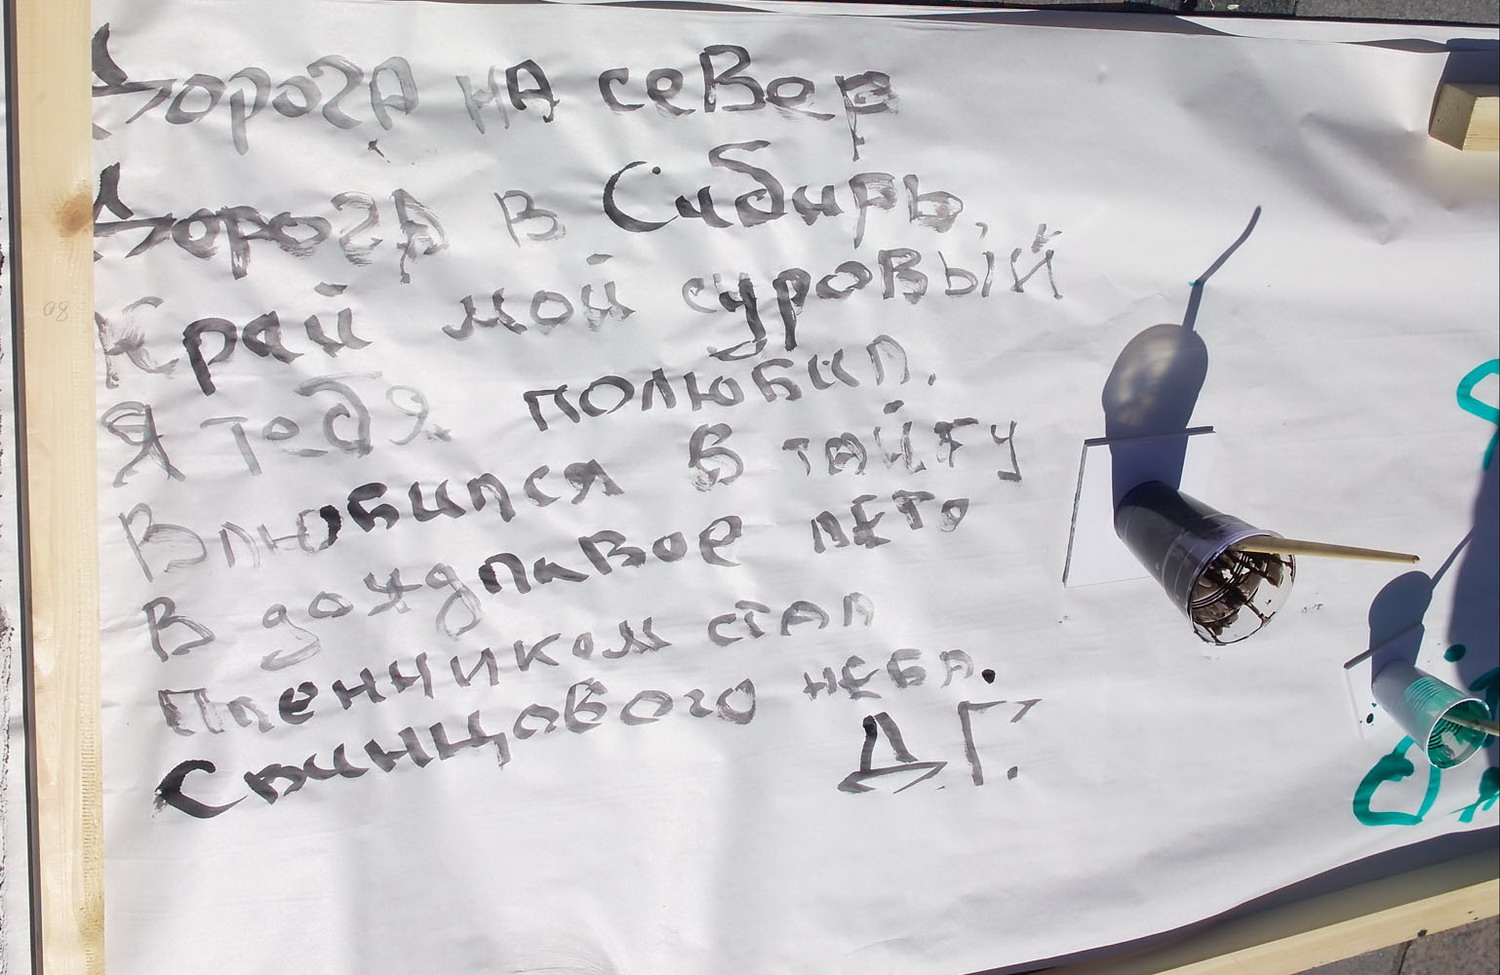 Дорога на север
Дорога в Сибирь,
Край мой суровый
Я тебя полюбил.
Влюбился в тайгу
В дождливое лето
Пленником стал
Свинцового неба.
Д.Г.